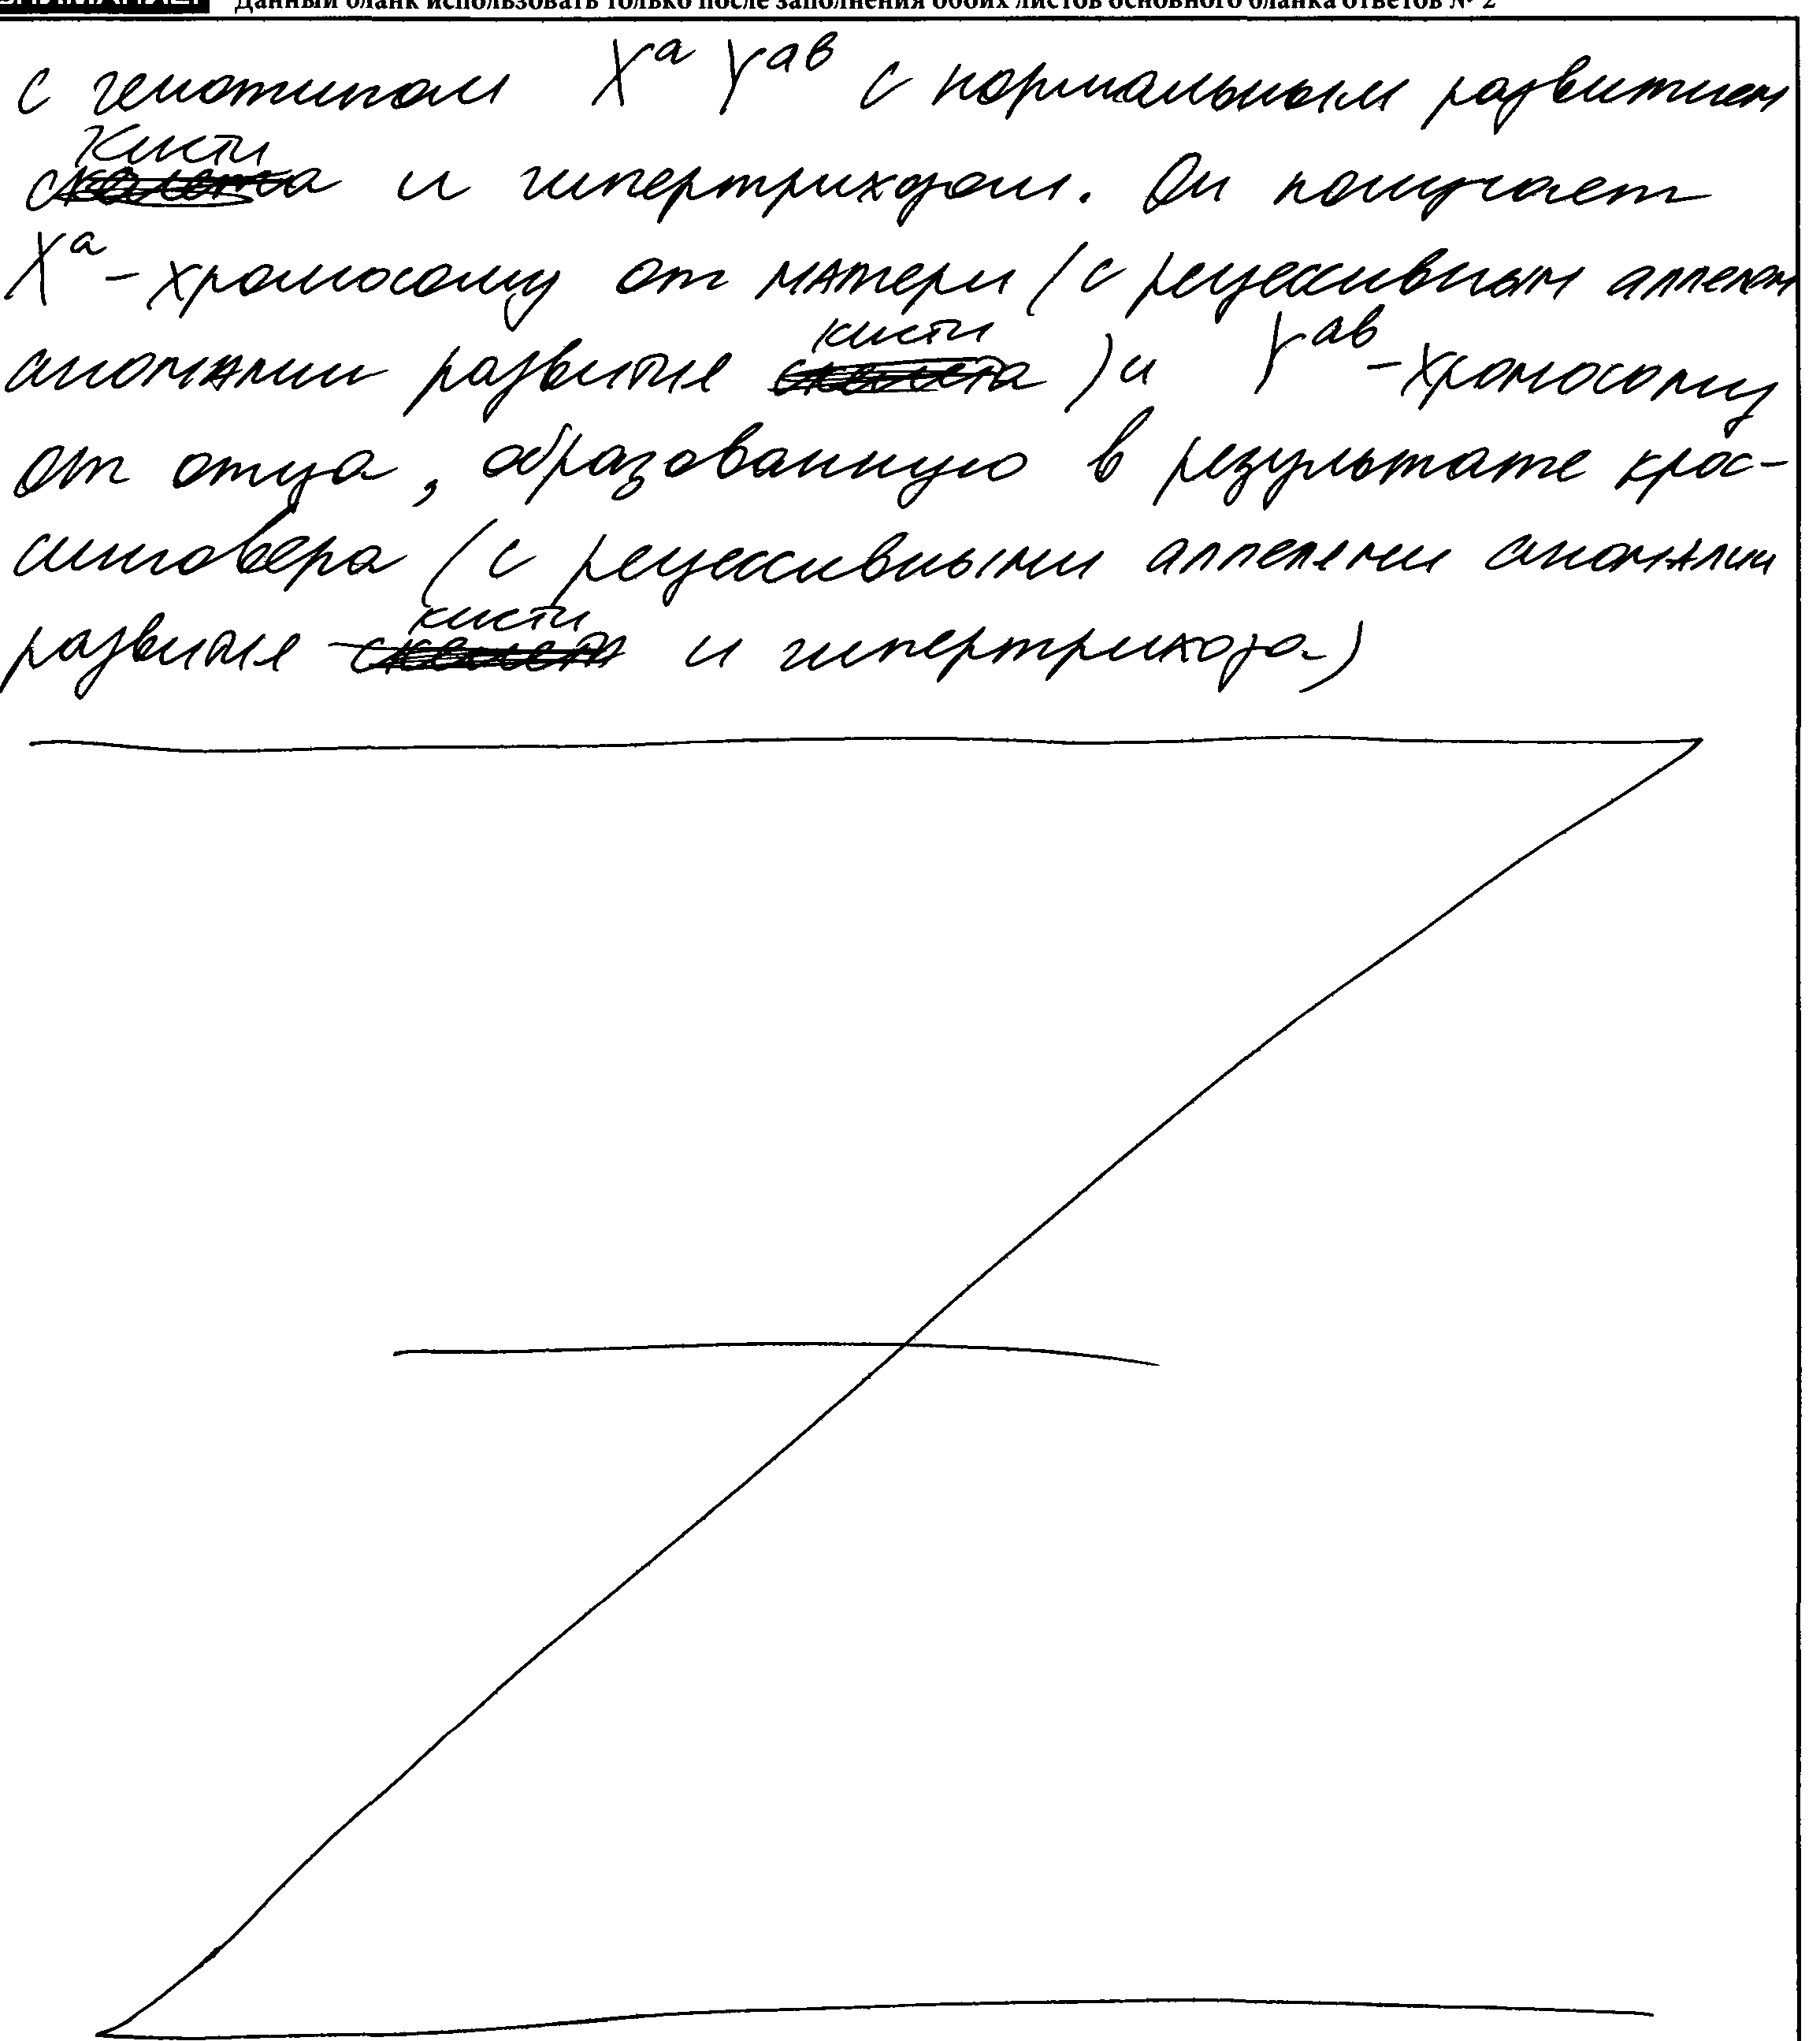 Данный бланк использовать только после заполнения обоих листов основного бланка ответов № 2
с генотипом Xᵃ Yᵃᵇ с нормальным развитием
кисти
и гипертрихозом. Он получает
Xᵃ-хромосому от матери (с рецессивным аллелем
аномалии развитие кисти) и Yᵃᵇ-хромосому
от отца, образованную в результате крос-
синговера (с рецессивными аллелеми аномалии
развитие кисти и гипертрихоза)